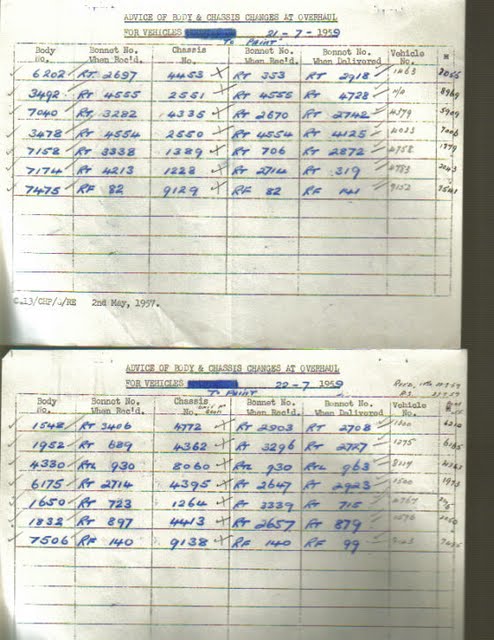 ADVICE OF BODY & CHASSIS CHANGES AT OVERHAUL
FOR VEHICLES 21-7-1959
To PAINT
Body No. Bonnet No. When Rec'd. Chassis No. Bonnet No. When Rec'd. Bonnet No. When Delivered Vehicle No.
6202 RT 2697 4453 RT 353 RT 2918 1463
3492 RT 4555 2551 RT 4555 RT 4728 8969
7040 RT 3282 4335 RT 2670 RT 2742 4379
3478 RT 4554 2550 RT 4554 RT 4125 4023
7158 RT 3338 1389 RT 706 RT 2872 4758
7174 RT 4213 1228 RT 2714 RT 319 4783
7475 RF 82 9129 RF 82 RF 141 9152 7541
C.13/CHP/J/RE 2nd May, 1957.
ADVICE OF BODY & CHASSIS CHANGES AT OVERHAUL
FOR VEHICLES 22-7-1959
To PAINT
Body No. Bonnet No. When Rec'd. Chassis No. Bonnet No. When Rec'd. Bonnet No. When Delivered Vehicle No.
1548 RT 3406 4772 RT 2903 RT 2708
1952 RT 689 4362 RT 3296 RT 2727 1275
4330 RTL 930 8060 RTL 930 RTL 963 8117
6175 RT 2714 4395 RT 2647 RT 2923 1500
1650 RT 723 1264 RT 3339 RT 715
1832 RT 897 4413 RT 2657 RT 879
7506 RF 140 9138 RF 140 RF 99